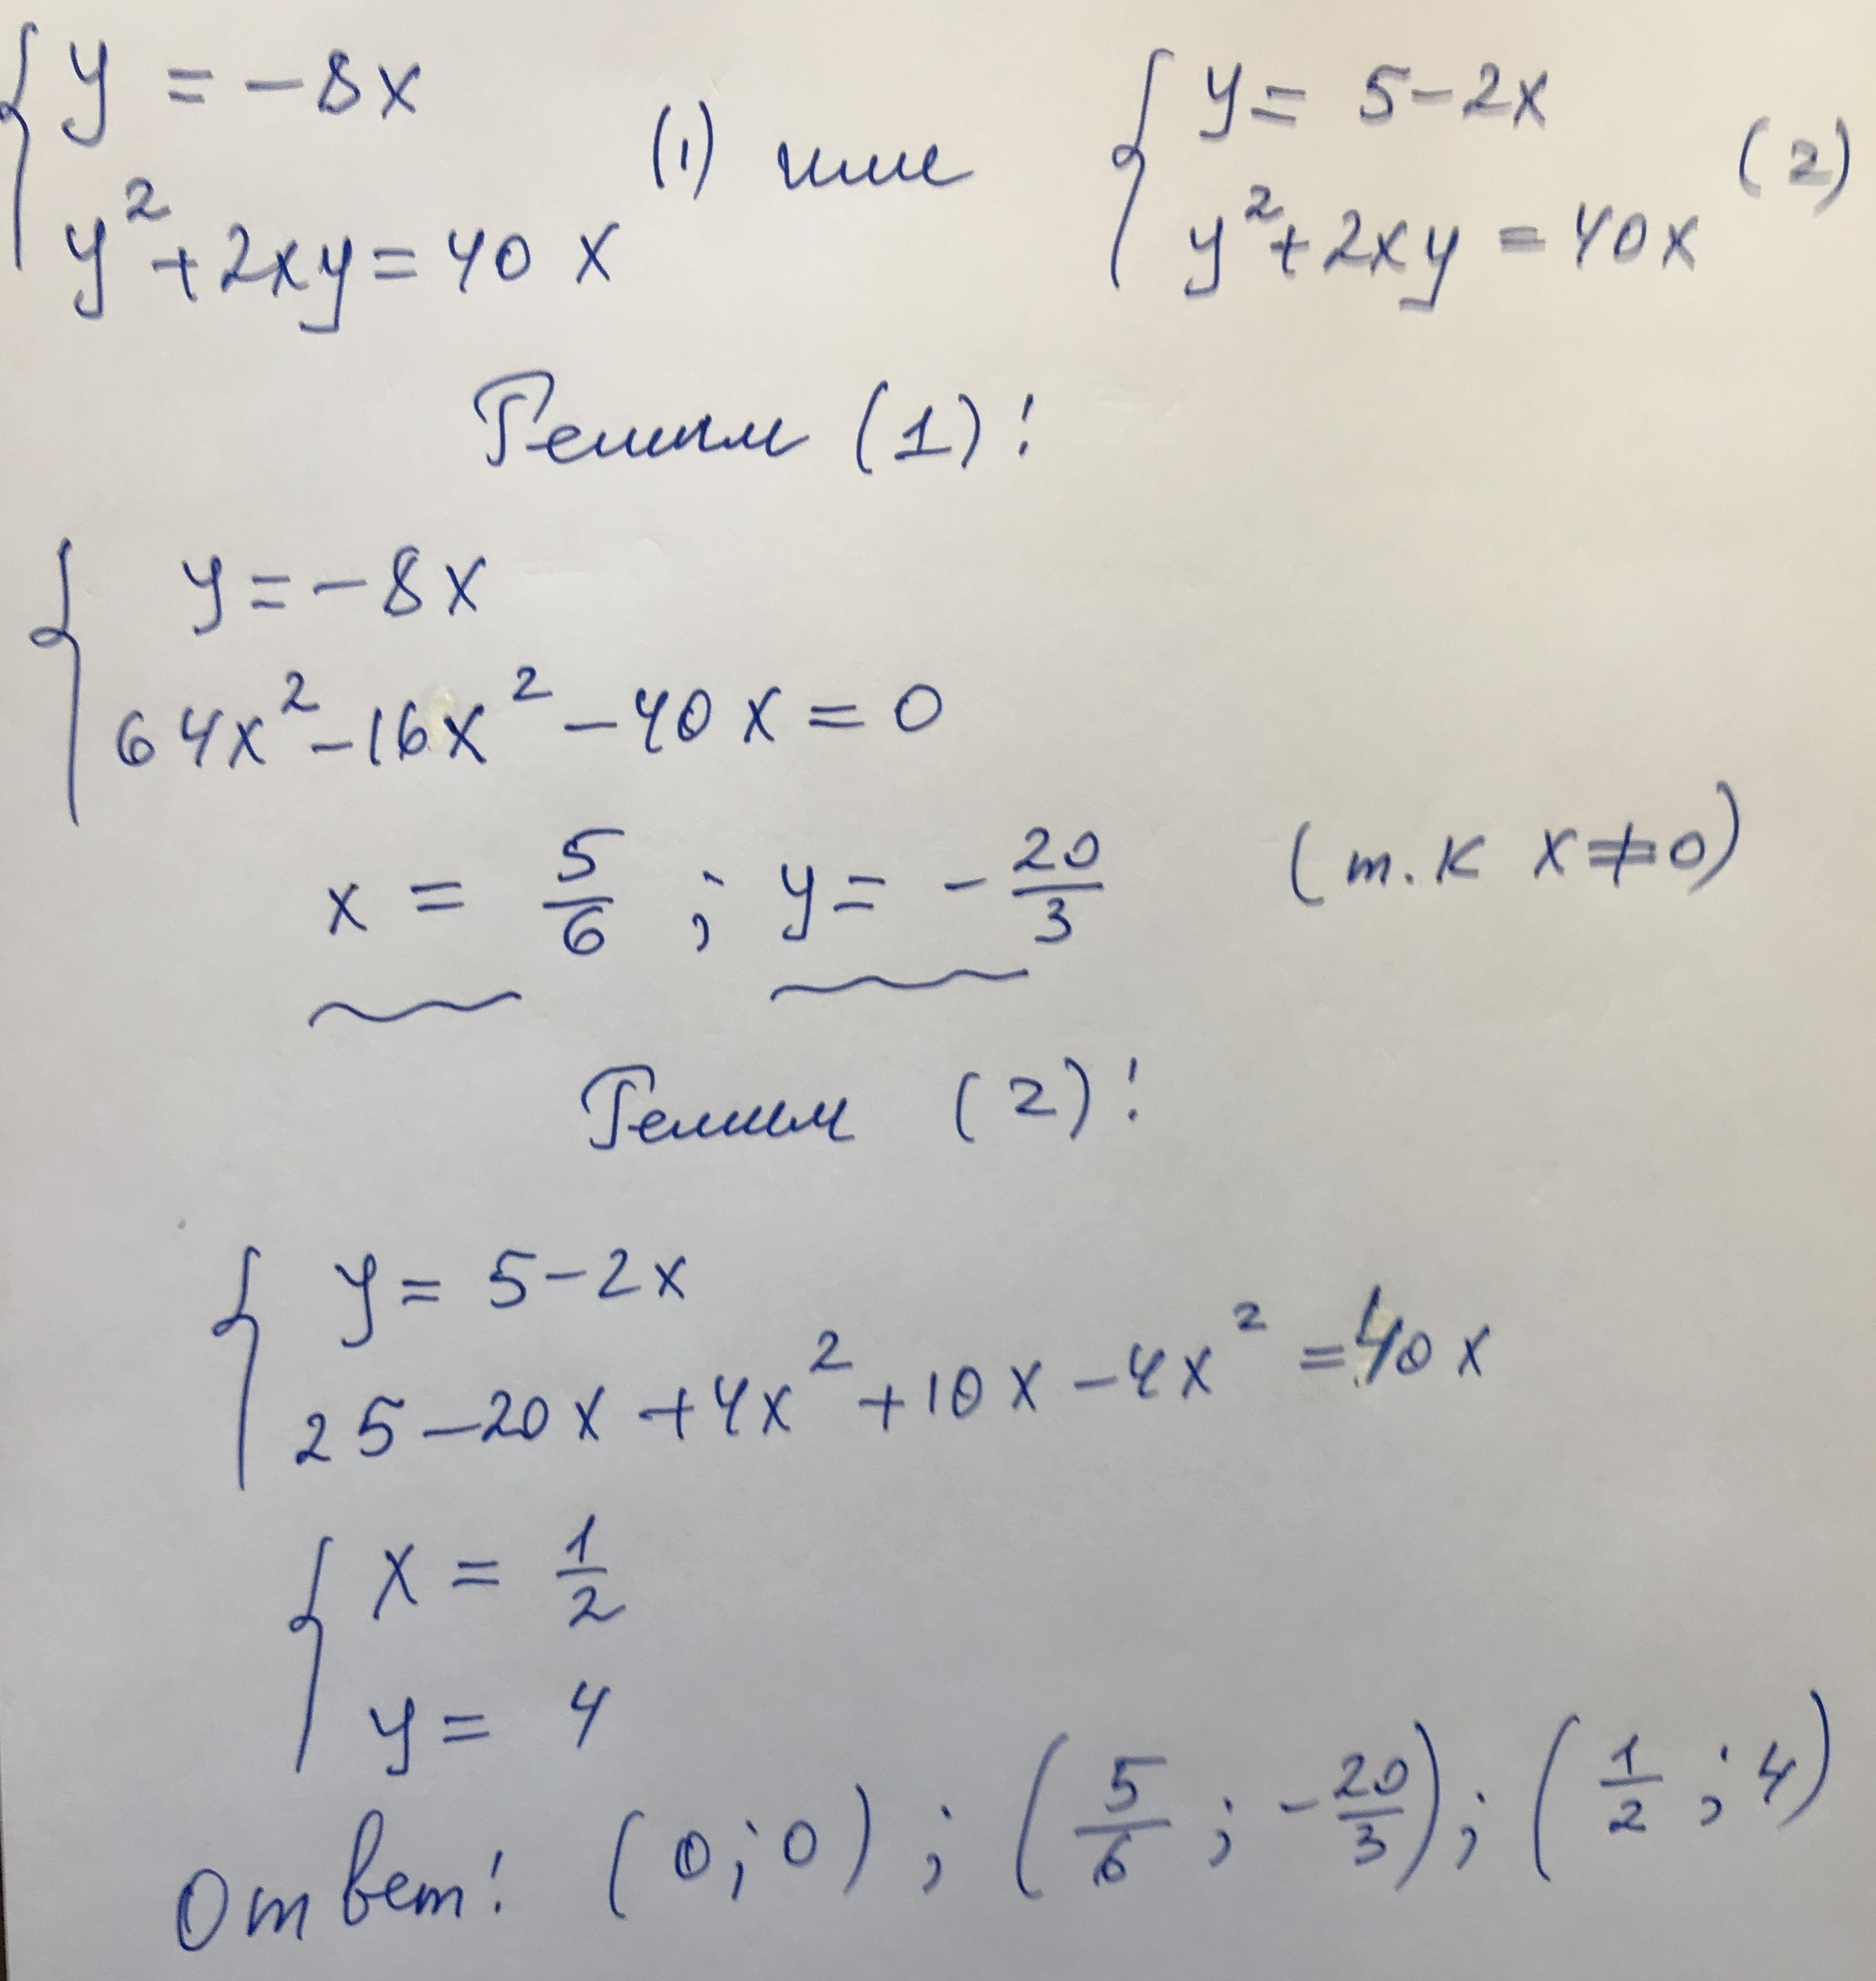 { y = -8x
{ y² + 2xy = 40x (1) или { y = 5 - 2x
{ y² + 2xy = 40x (2)
Решим (1):
{ y = -8x
{ 64x² - 16x² - 40x = 0
x = 5/6 ; y = - 20/3 (т.к x ≠ 0)
Решим (2):
{ y = 5 - 2x
{ 25 - 20x + 4x² + 10x - 4x² = 40x
{ x = 1/2
{ y = 4
Ответ: (0; 0) ; (5/6 ; - 20/3) ; (1/2 ; 4)